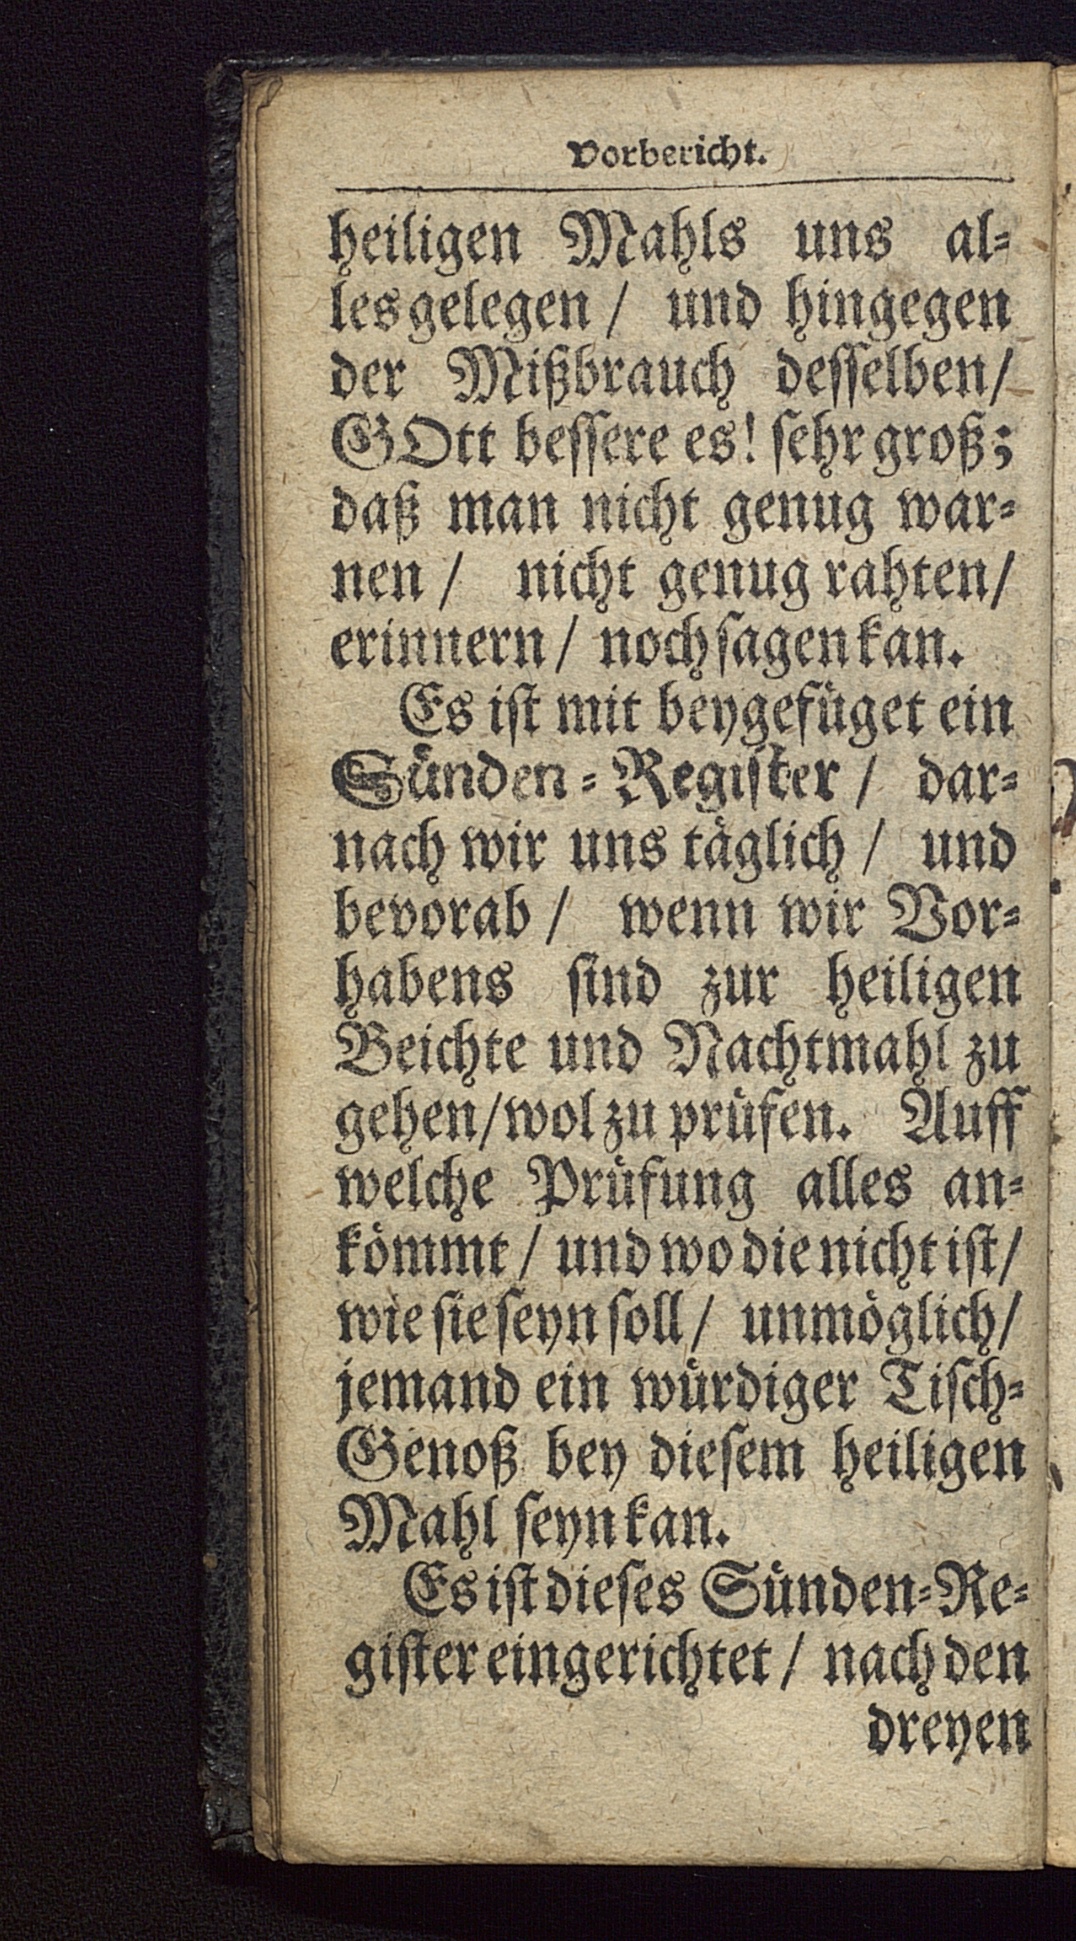 Vorbericht.
heiligen Mahls uns al⸗
les gelegen / und hingegen
der Mißbrauch deſſelben/
GOtt beſſere es! ſehr groß;
daß man nicht genug war⸗
nen / nicht genug rahten/
erinnern / noch ſagen kan.
Es iſt mit beygefüget ein
Sünden⸗Regiſter / dar⸗
nach wir uns täglich / und
bevorab / wenn wir Vor⸗
habens ſind zur heiligen
Beichte und Nachtmahl zu
gehen/wol zu prüfen. Auff
welche Prüfung alles an⸗
kömmt / und wo die nicht iſt/
wie ſie ſeyn ſoll / unmöglich/
jemand ein würdiger Tiſch⸗
Genoß bey dieſem heiligen
Mahl ſeyn kan.
Es iſt dieſes Sünden⸗Re⸗
giſter eingerichtet / nach den
dreyen